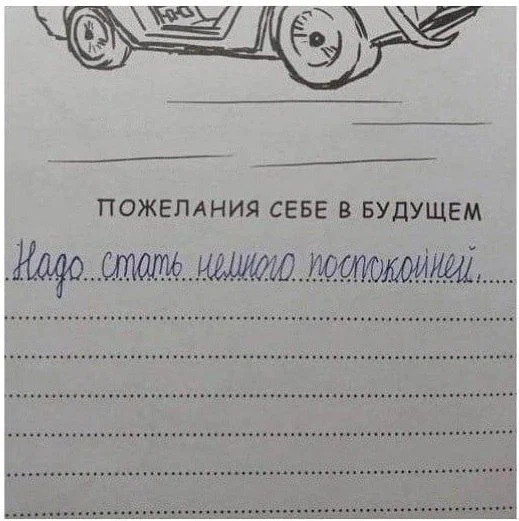 ПОЖЕЛАНИЯ СЕБЕ В БУДУЩЕМ
Надо стать немного поспокойней.